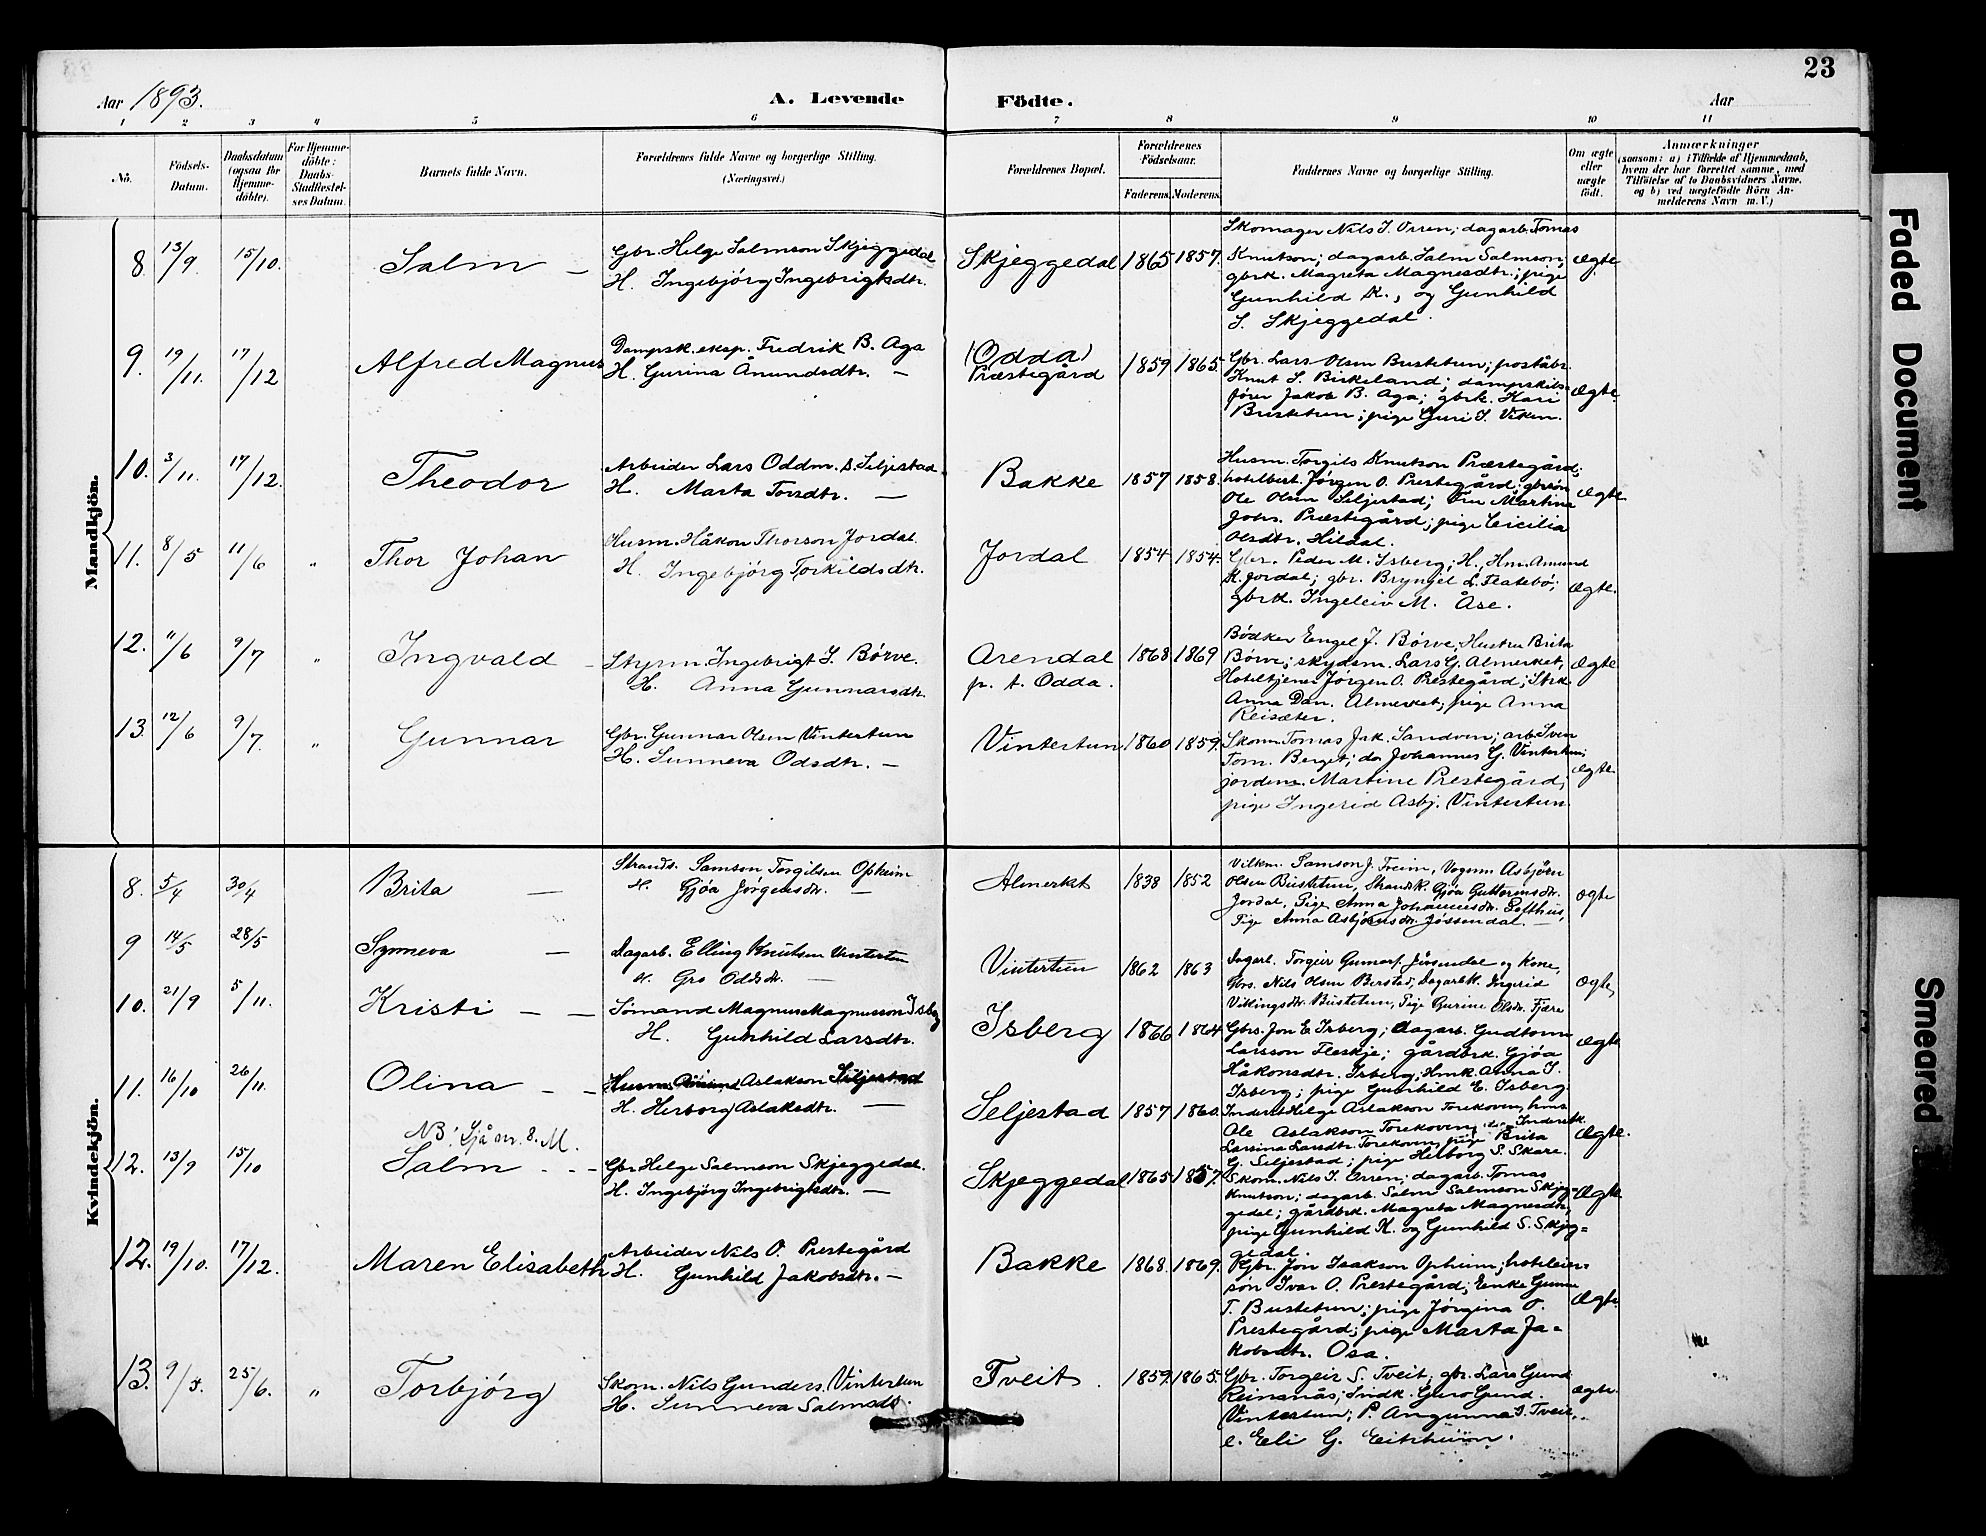 23
Aar 1893.
A. Levende Födte.
Aar
1 2 3 4 5 6 7 8 9 10 11
No.
Födsels-Datum.
Daabsdatum (ogsaa for Hjemme-döbte).
For Hjemme-döbte: Daabs-Stadfæstel-ses Datum.
Barnets fulde Navn.
Forældrenes fulde Navne og borgerlige Stilling. (Næringsvei.)
Forældrenes Bopæl.
Forældrenes Födselsaar.
Faderens. Moderens.
Faddernes Navne og borgerlige Stilling.
Om ægte eller uægte født.
Anmærkninger
(saasom: a) i Tilfælde af Hjemmedaab,
hvem der har forrettet samme, med
Tilföielse af to Daabsvidners Navne.
og b) ved uægtefödte Börn An-
melderens Navn m. V.)
Mandkjön.
8. 13/9. 15/10. Salm — Gbr. Helge Salmson Skjeggedal
H. Ingebjörg Ingebrigtsdtr.
Skjeggedal 1865 1857.
Skomager Nils J. Orren; dagarb. Tomas
Knutson; dagarb. Salm Salmson;
gbrk. Magreta Magnesdtr.; pige
Gunhild K., og Gunhild
S. Skjeggedal.
Ægte
9. 19/11. 17/12 Alfred Magnus Dampsk. eksp. Fredrik B. Aga
H. Gurina Ånundsdtr. —
(Odda)
Præstegård 1859 1865.
Gbr. Lars Olsen Bustetun; poståbr.
Knut S. Birkeland; dampskibs-
fører Jakob B. Aga; gbrk. Kari
Bustetun; pige Guri S. Viken.
Ægte.
10. 3/11. 17/12. Theodor Arbeider Lars Oddm. S. Seljestad
H. Marta Torsdtr. —
Bakke 1857 1858.
Husm. Torgils Knutson Præstegård;
hotelbest. Jørgen O. Prestegård; gbrsøn
Ole Olsen Seljestad; Fru Martina
Johs. Præstegård; pige Cicilia
Olsdtr. Hildal.
Ægte
11. 8/5 11/6 " Thor Johan Husm. Håkon Thorson Jordal
H. Ingebjörg Torkildsdtr.
Jordal 1854 1854.
Gbr. Peder M. Isberg; H., Hm. Amund
K. Jordal; gbr. Bryngel L. Flatebö;
gbrk. Ingeleiv M. Åse.
Ægte.
12. 11/6 9/7 " Ingvald — Styrm. Ingebrigt J. Börve.
H. Anna Gunnarsdtr.
Arendal
p. t. Odda. 1868 1869
Bødker Engel J. Børve, Hustru Brita
Børve; skydsm. Lars G. Almerket,
Hoteltjener Jørgen O. Prestegård; Strk.
Anna Dan. Almerket; pige Anna
Reisæter.
Ægte
13. 12/6 9/7. " Gunnar Gbr. Gunnar Olsen Vintertun
H. Sunneva Odsdtr. —
Vintertun 1860 1859.
Skom. Tomas Jak. Sandven; arb. Sven
Tom. Berget; do Johannes G. Vintertun;
jordem. Martine Prestegård;
pige Ingerid Asbj. Vintertun.
Ægte
Kvindekjön.
8. 5/4 30/4 Brita — Strands. Samson Torgilsen Opheim
H. Gjöa Jørgensdtr. —
Almerket 1838 1852
Vilkm. Samson J. Freim, Vognm. Asbjørn
Olsen Bustetun, Strandk. Gjöa Guttormsdtr.
Jordal, Pige Anna Johannesdtr. Lofthus,
Pige Anna Asbjørnsdtr. Jössendal. —
ægte
9 14/5 28/5 Synneva — Dagarb. Elling Knutsen Vintertun
H. Gro Oddsdtr. —
Vintertun 1862 1863
Dagarb. Torgeir Gunnars. Jössendal og Kone,
Gbrs. Nils Olsen Berstad, Dagarbk. Ingerid
Vikingsdtr. Bustetun, Pige Gurine Olsdtr. Fjære
ægte,
10. 21/9 5/11. Kristi — — Sömand Magnus Magnusson Isberg
H. Gunhild Larsdtr.
Isberg 1866 1864
Gbrs. Jon E. Isberg; dagarb. Gudtorm
Larsson Fleskje; gårdbrk. Gjöa
Håkonsdtr. Isberg; Hmk. Anna J.
Isberg; pige Gunhild E. Isberg
Ægte
11. 16/10 26/11. Olina — — Husm. Aslakson Seljestad
H. Herborg Aslaksdtr. —
Seljestad 1857 1860.
Inderst Helge Aslakson Torekoven,
Ole Aslakson Torekoven; Inderstk.
Larsina Larsdtr. Torekoven, pige Brita
G. Seljestad; pige Herborg S. Skare.
Ægte.
NB! Sjå nr. 8. M.
12. 13/9 15/10 Salm - - - Gbr Helge Salmson Skjeggedal.
H. Ingebjörg Ingebrigtsdtr. —
Skjeggedal 1865 1857.
Skom. Nils J. Orren; dagarb. Tomas
Knutson; dagarb. Salm Salmson Skjeg-
gedal; gårdbrk. Magreta Magnesdtr.
pige Gunhild K. og Gunhild S. Skjeg=
gedal.
Ægte
12. 19/10. 17/12. Maren Elisabeth Arbeider Nils O. Prestegård
H. Gunhild Jakobsdtr. —
Bakke 1868. 1869.
Gbr. Jon Isakson Opheim; hoteleier=
søn Ivar O. Prestegård; Enke Gunna
T. Bustetun; pige Jørgina O.
Prestegård; pige Marta Ja=
kobsdtr. Osa.
Ægte.
13. 9/5. 25/6. " Torbjörg Skom. Nils Gunders. Vintertun
H. Sunneva Salmsdtr.
Tveit. 1859 1865.
Gbr. Torgeir S. Tveit; gbr. Lars Gund
Reinsnås; Indk. Guro Gund.
Vintertun; P. Angunna S. Tveit,
e. Eli G. Eitrheim.
ægte.
Faded Document
Smeared